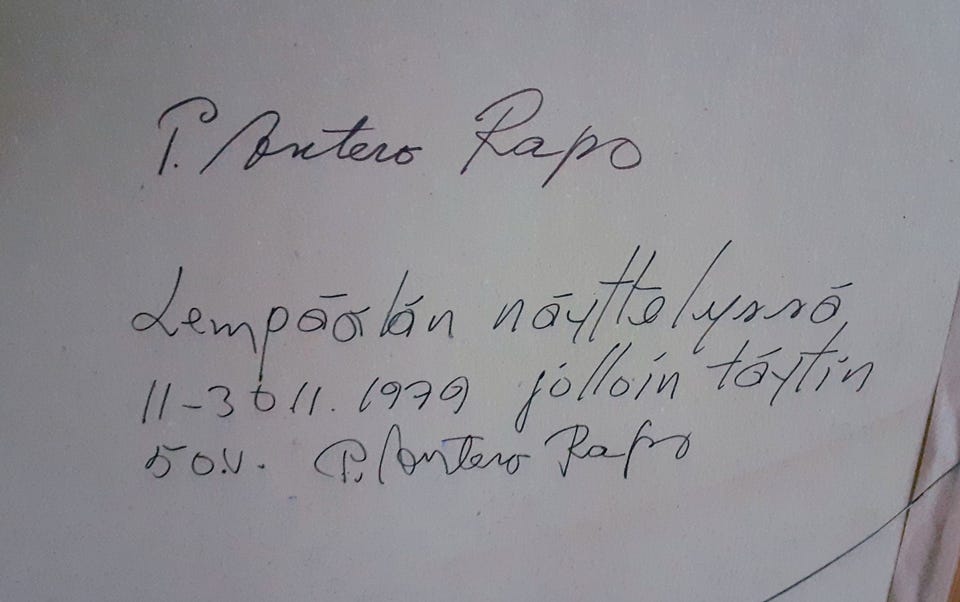 P. Antero Rapo
Lempäälän näyttelyssä
11-30 11. 1979 jolloin täytin
50.v. P. Antero Rapo